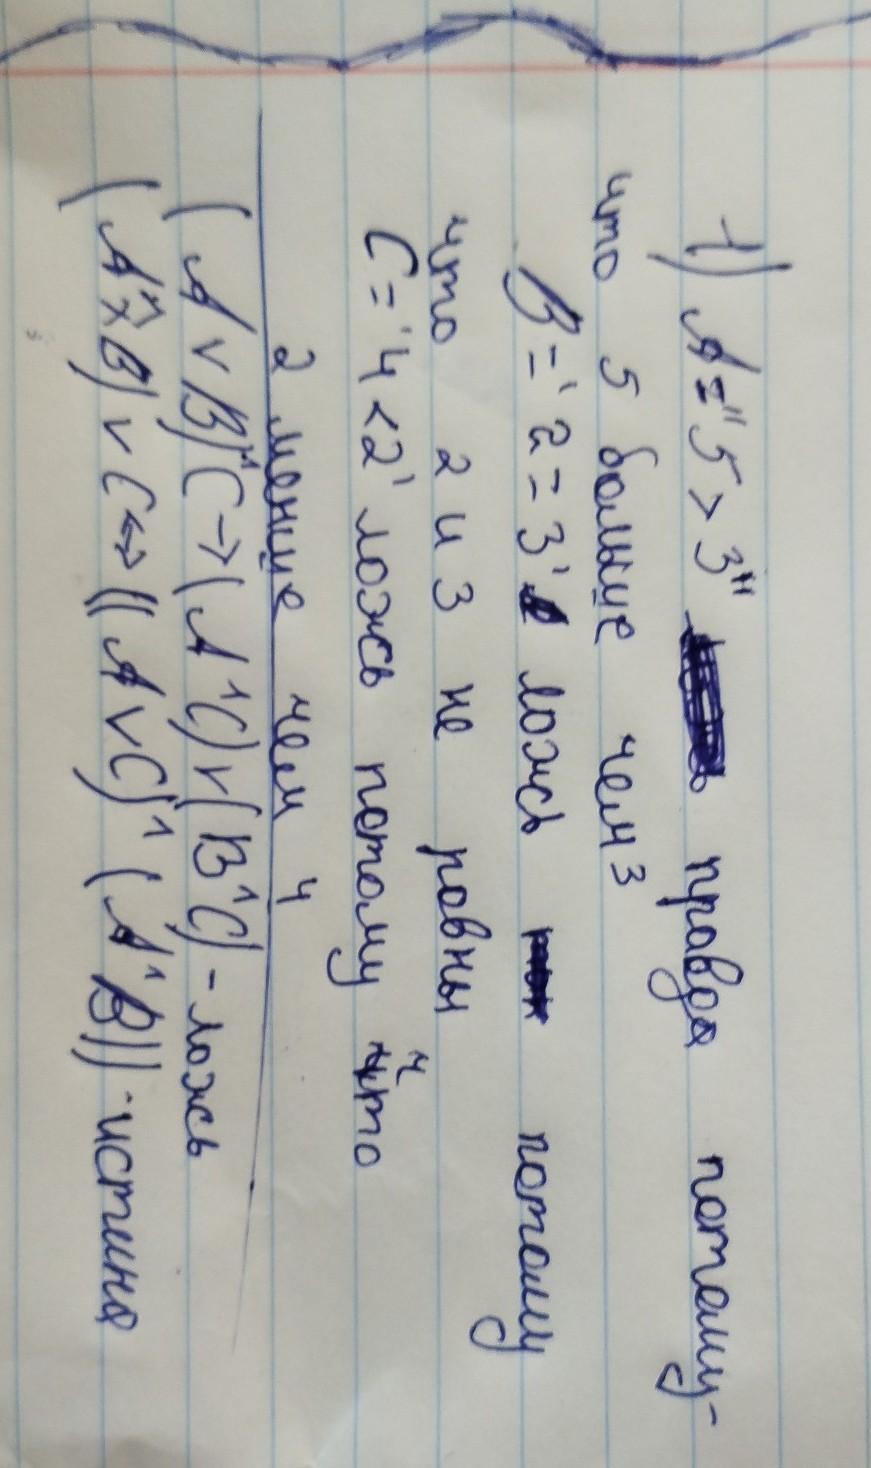 1) A="5>3" правда потому-
что 5 больше чем 3
B='2=3' ложь потому
что 2 и 3 не равны
C='4<2' ложь потому что
2 меньше чем 4
(A∨B)^C→(A^C)∨(B^C)-ложь
(A^B)∨C↔((A∨C)^(A^B))-истина